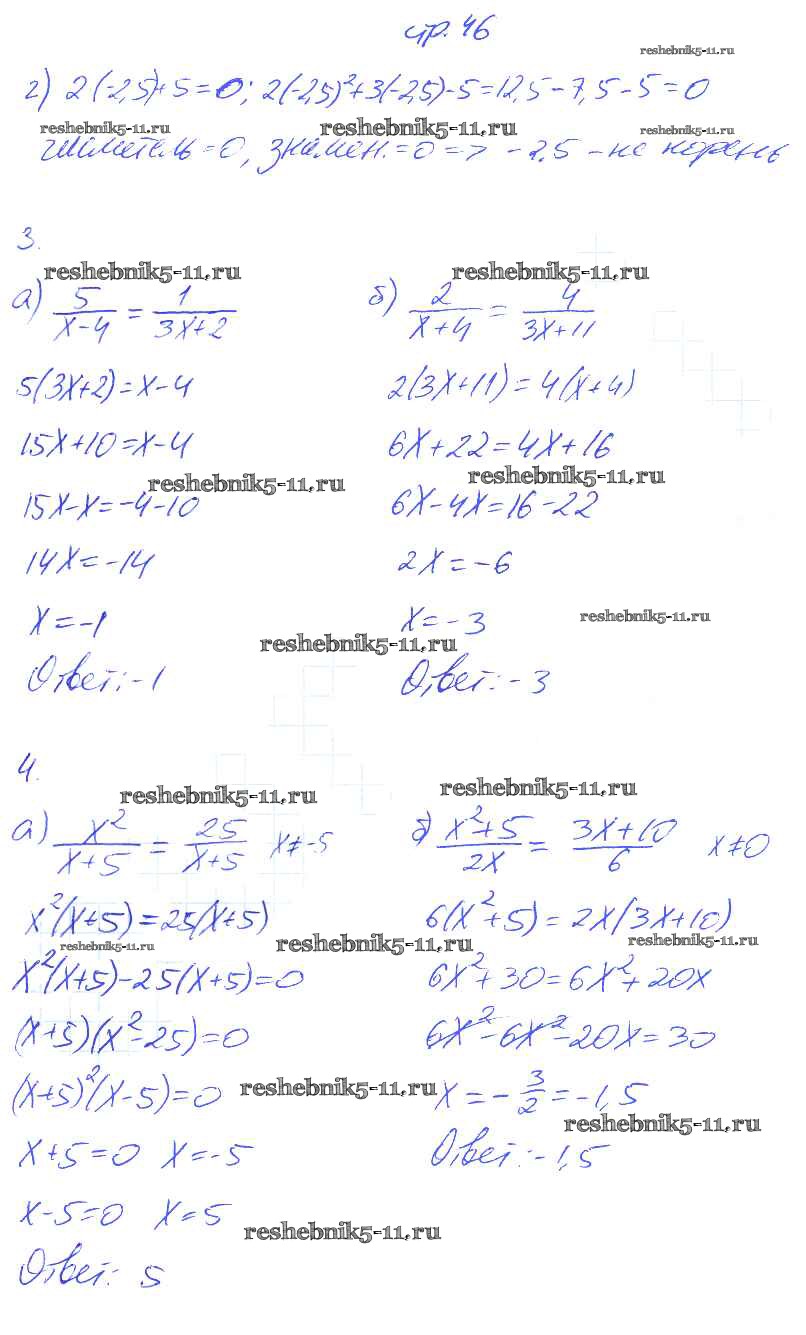 стр. 46
reshebnik5-11.ru
г) 2(-2,5)+5=0; 2(-2,5)²+3(-2,5)-5=12,5-7,5-5=0
reshebnik5-11.ru reshebnik5-11.ru reshebnik5-11.ru
числитель=0, знамен.=0=> -2.5 - не корень
3.
reshebnik5-11.ru
а) 5/(x-4) = 1/(3x+2)
5(3x+2)=x-4
15x+10=x-4
reshebnik5-11.ru
15x-x=-4-10
14x=-14
x=-1
reshebnik5-11.ru
Ответ:-1
reshebnik5-11.ru
б) 2/(x+4) = 4/(3x+11)
2(3x+11)=4(x+4)
6x+22=4x+16
reshebnik5-11.ru
6x-4x=16-22
2x=-6
x=-3
reshebnik5-11.ru
Ответ:-3
4.
reshebnik5-11.ru
а) x²/(x+5) = 25/(x+5) x≠-5
x²(x+5)=25(x+5)
reshebnik5-11.ru
reshebnik5-11.ru
x²(x+5)-25(x+5)=0
(x+5)(x²-25)=0
(x+5)²(x-5)=0
reshebnik5-11.ru
x+5=0 x=-5
x-5=0 x=5
reshebnik5-11.ru
Ответ: 5
reshebnik5-11.ru
б) (x²+5)/2x = (3x+10)/6 x≠0
6(x²+5)=2x(3x+10)
reshebnik5-11.ru
6x²+30=6x²+20x
6x²-6x²-20x=30
x=-3/2=-1,5
reshebnik5-11.ru
Ответ:-1,5